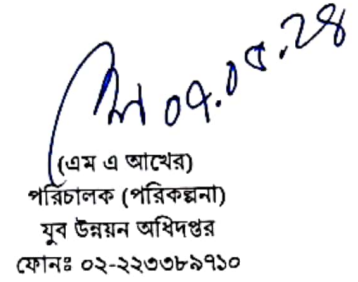 ০৭.০৫.২৪
(এম এ আখের)
পরিচালক (পরিকল্পনা)
যুব উন্নয়ন অধিদপ্তর
ফোনঃ ০২-২২৩৩৮৯৭১০